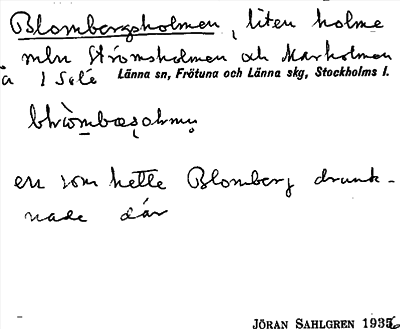 Blombergsholmen, liten holme
mln Strömsholmen och Marholmen
å
Länna sn, Frötuna och Länna skg, Stockholms l.
en som hette Blomberg drunk-
nade där
JÖRAN SAHLGREN 1935